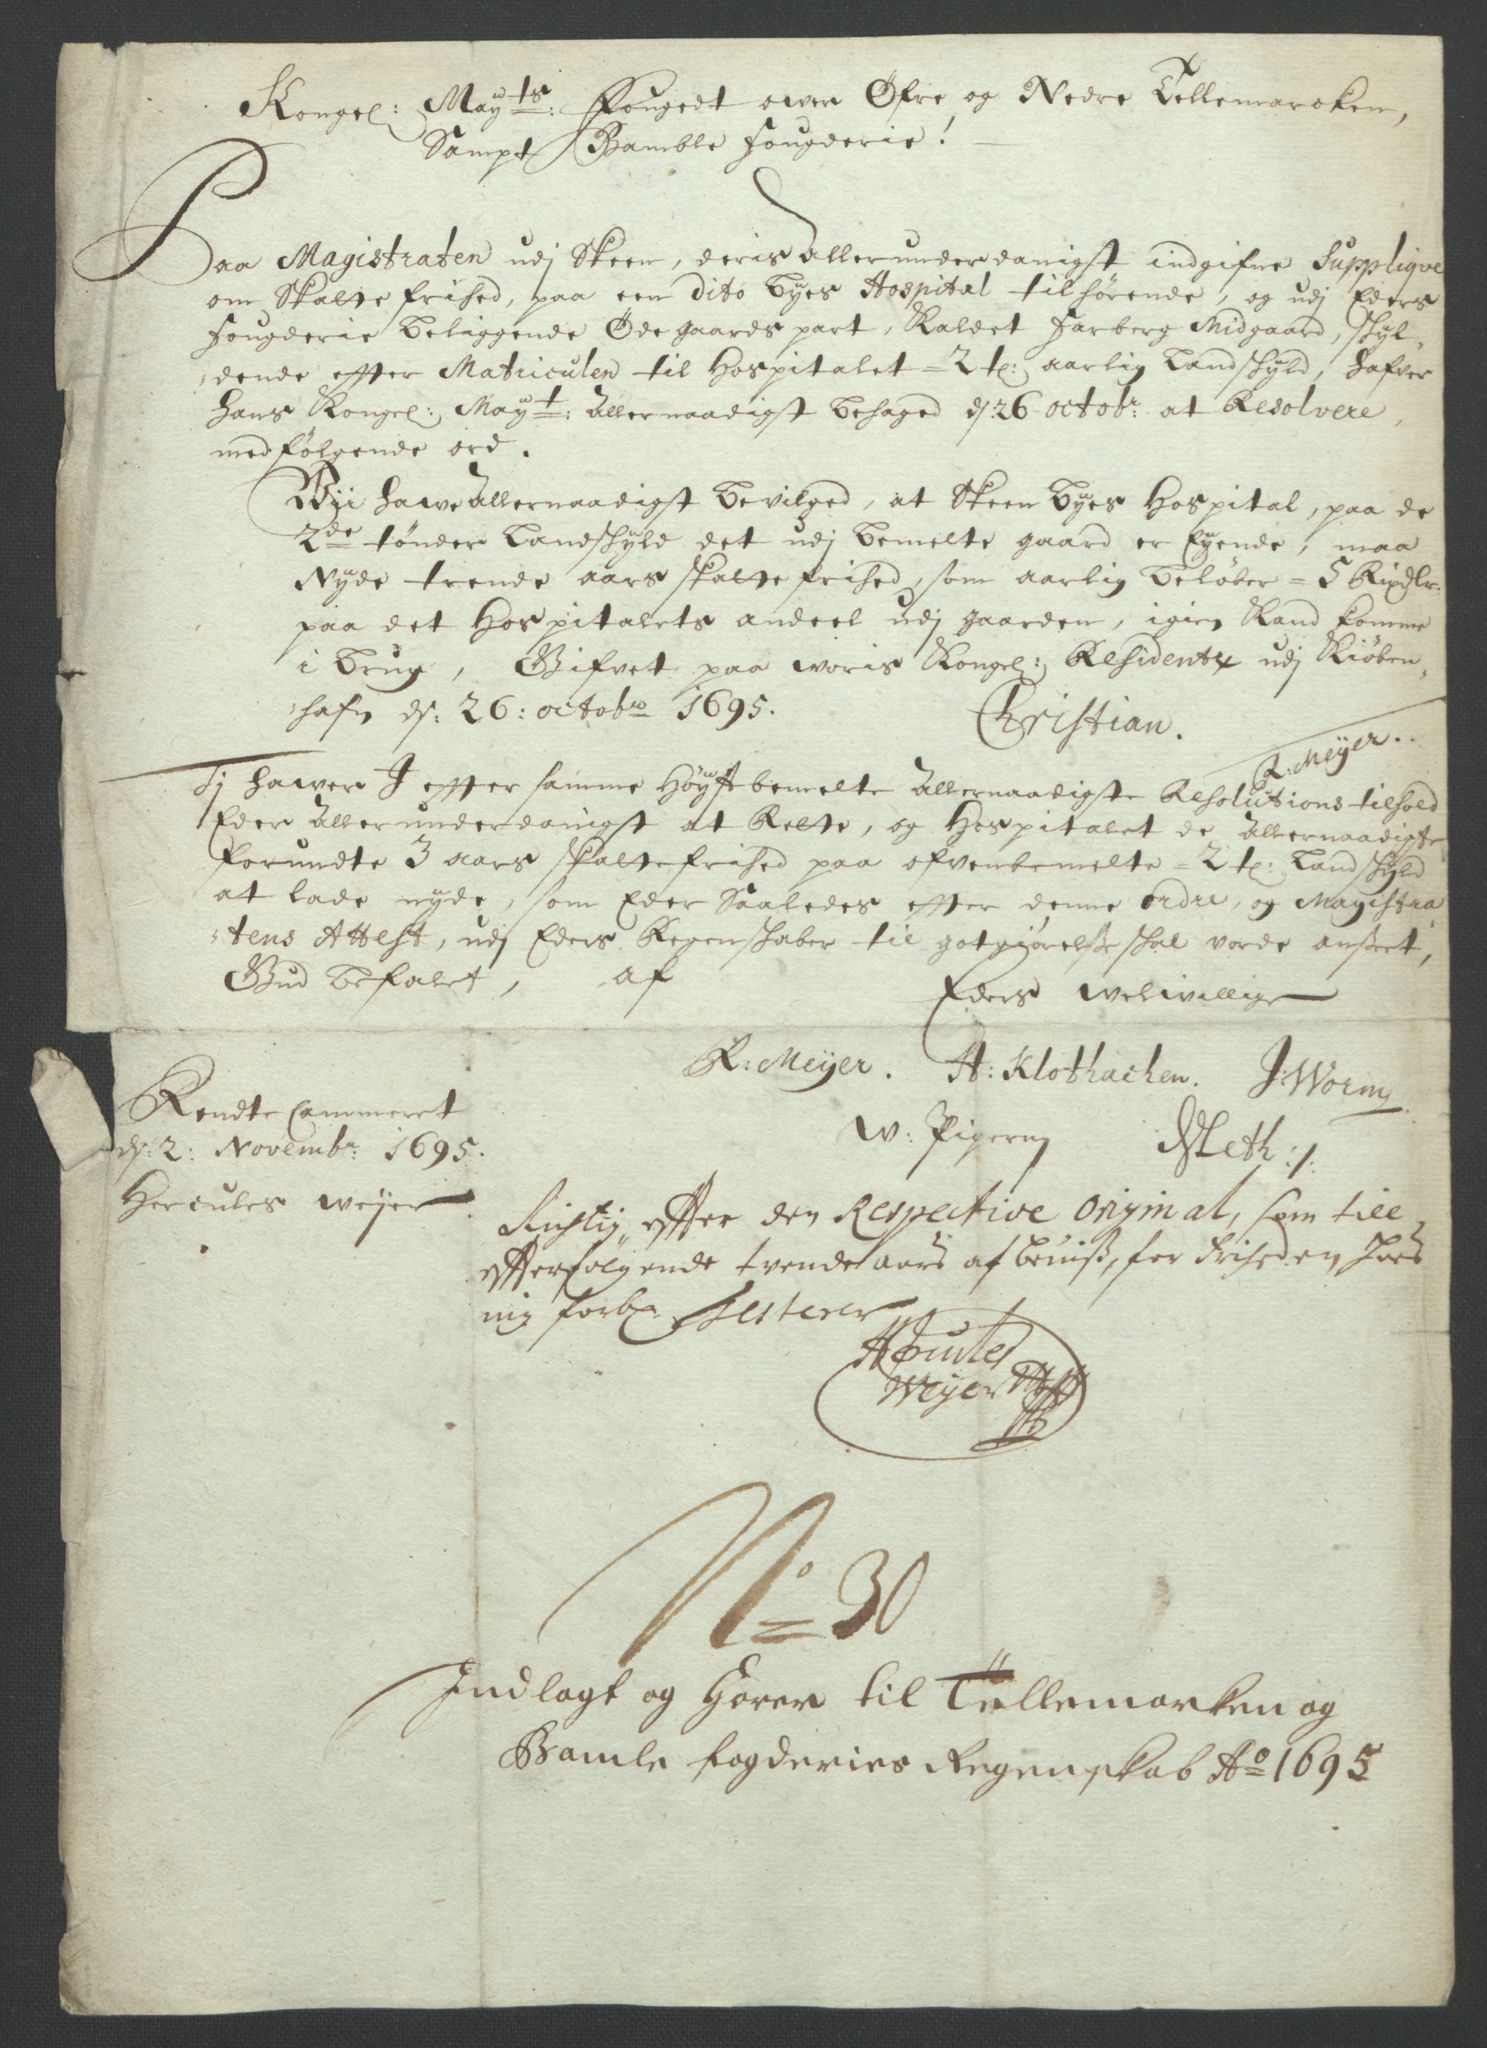 Kongel: Mayts: Fougedt over Øfre og Nedre Tellemarcken,
Sampt Bamble fougderie!
Paa Magistraten udj Skeen, deris allerunderdanigst indgifne Supplique
om Skatte frihed, paa een dito byes Hospital tilhørende, og udj Eders
fougderie beliggende Øde gaards part, Kaldet Farberg Midgaard, skyl-
dende effter Matriculen til Hospitalet = 2 t: aarlig Landskyld, hafver
hans Kongel: Mayt: allernaadigst behaged d: 26 octobr: at Resolvere,
med følgende ord.
Wii hawe allernaadigst bevilged, at Skeen byes Hospital, paa de
2de tønder Landskyld det udj bemelte gaard er Eyende, maa
Nyde trende aars skatte frihed, som aarlig beløber = 5 Rixdlr:
paa det Hospitalets andeel udj gaarden, igien Kand komme
i brug, Gifvet paa woris Kongel: Residentz udj Kiøben-
hafn d: 26: octobr 1695. Christian.
R: Meyer.
Ti hawer I effter samme Høystbemelte allernaadigste Resolutions tilhold
Eder allerunderdanigst at Rette, og Hospitalet de allernaadigste
forundte 3 aars skattefrihed paa ofvenbemelte = 2 t: Landskyld
at lade nyde, som Eder Saaledes effter denne ordre, og Magistra-
tens Attest, udj Eders Regenskaber til gotgiørelse skal vorde anseet,
Gud befalet, af
Eders welwillige
R: Meyer. H: Klothachen. J: Worm
W: Pigern Meth:/:
Rendte Cammeret
d: 2: Novembr: 1695.
Hercules Weyer
Richtig effter den Respective Original, som till
effterfølgende tvende aars af beviis, for friheden hos
mig forbr: Testerer
Hercules
Weyer
No 30
Indlagt og Hører til Tellemarken og
Bamle fogderies Regenskab Ao 1695